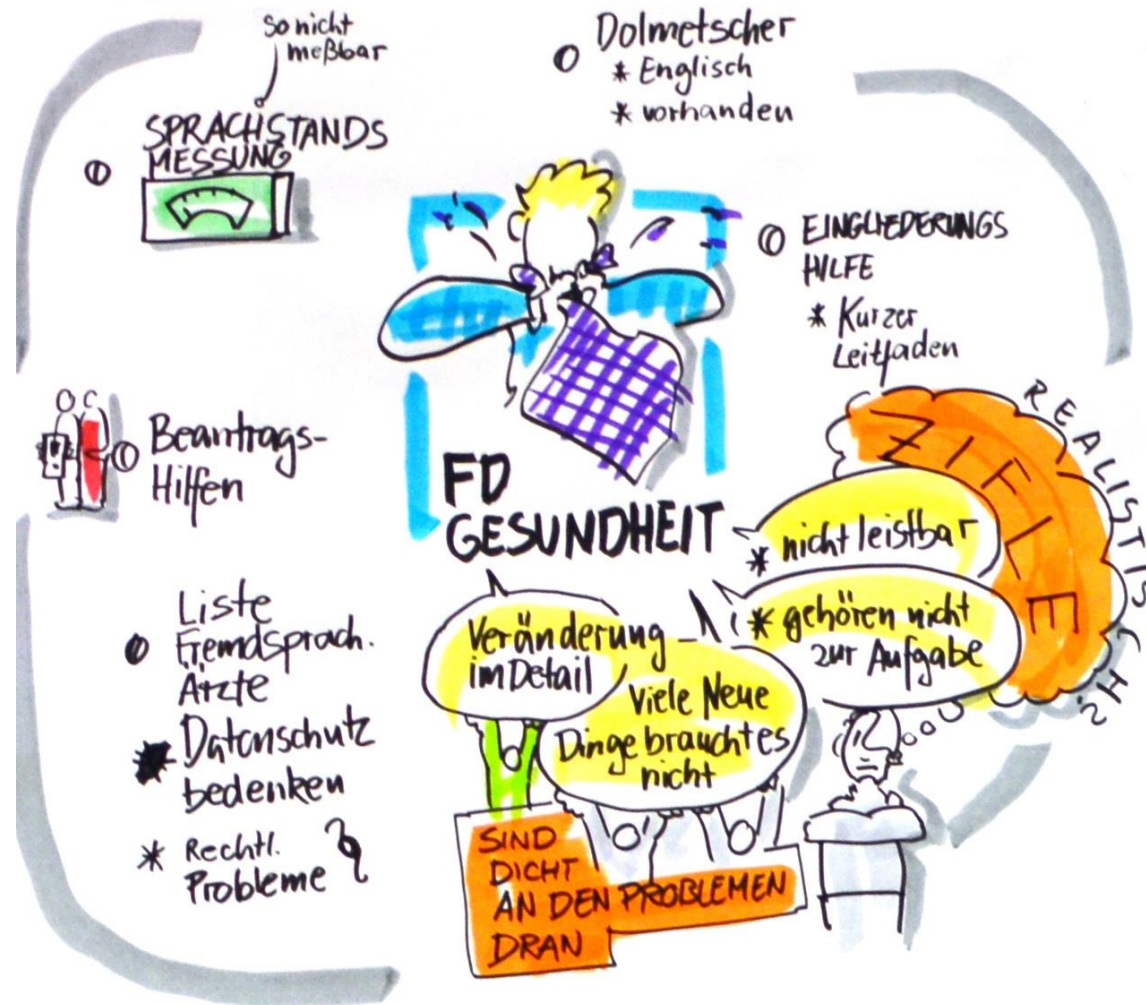 so nicht
meßbar
SPRACHSTANDS
MESSUNG
Dolmetscher
* Englisch
* vorhanden
EINGLIEDERUNGS
HILFE
* Kurzer
Leitfaden
Beantrags-
Hilfen
FD
GESUNDHEIT
REALISTISCH?
ZIELE
* nicht leistbar
* gehören nicht
zur Aufgabe
Veränderung
im Detail
Viele Neue
Dinge braucht es
nicht
Liste
Fremdsprach.
Ärzte
Datenschutz
bedenken
* Rechtl.
Probleme
SIND
DICHT
AN DEN PROBLEMEN
DRAN